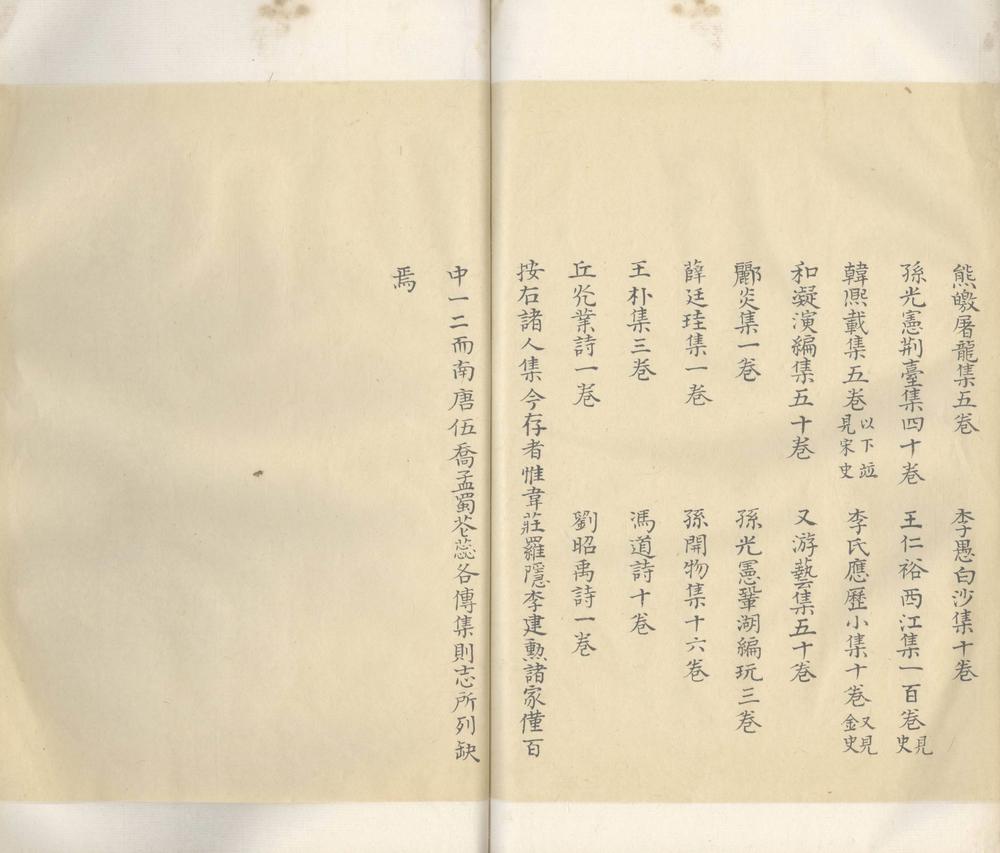 熊皦屠龍集五卷　李愚白沙集十卷
孫光憲荆臺集四十卷　王仁裕西江集一百卷見史
韓熈載集五卷以下竝見宋史　李氏應歷小集十卷又見金史
和凝演編集五十卷　又游藝集五十卷
酈炎集一卷　孫光憲鞏湖編玩三卷
薛廷珪集一卷　孫開物集十六卷
王朴集三卷　馮道詩十卷
丘光業詩一卷　劉昭禹詩一卷
按右諸人集今存者惟韋莊羅隱李建勲諸家僅百
中一二而南唐伍喬孟蜀花蕊各傳集則志所列缺
焉